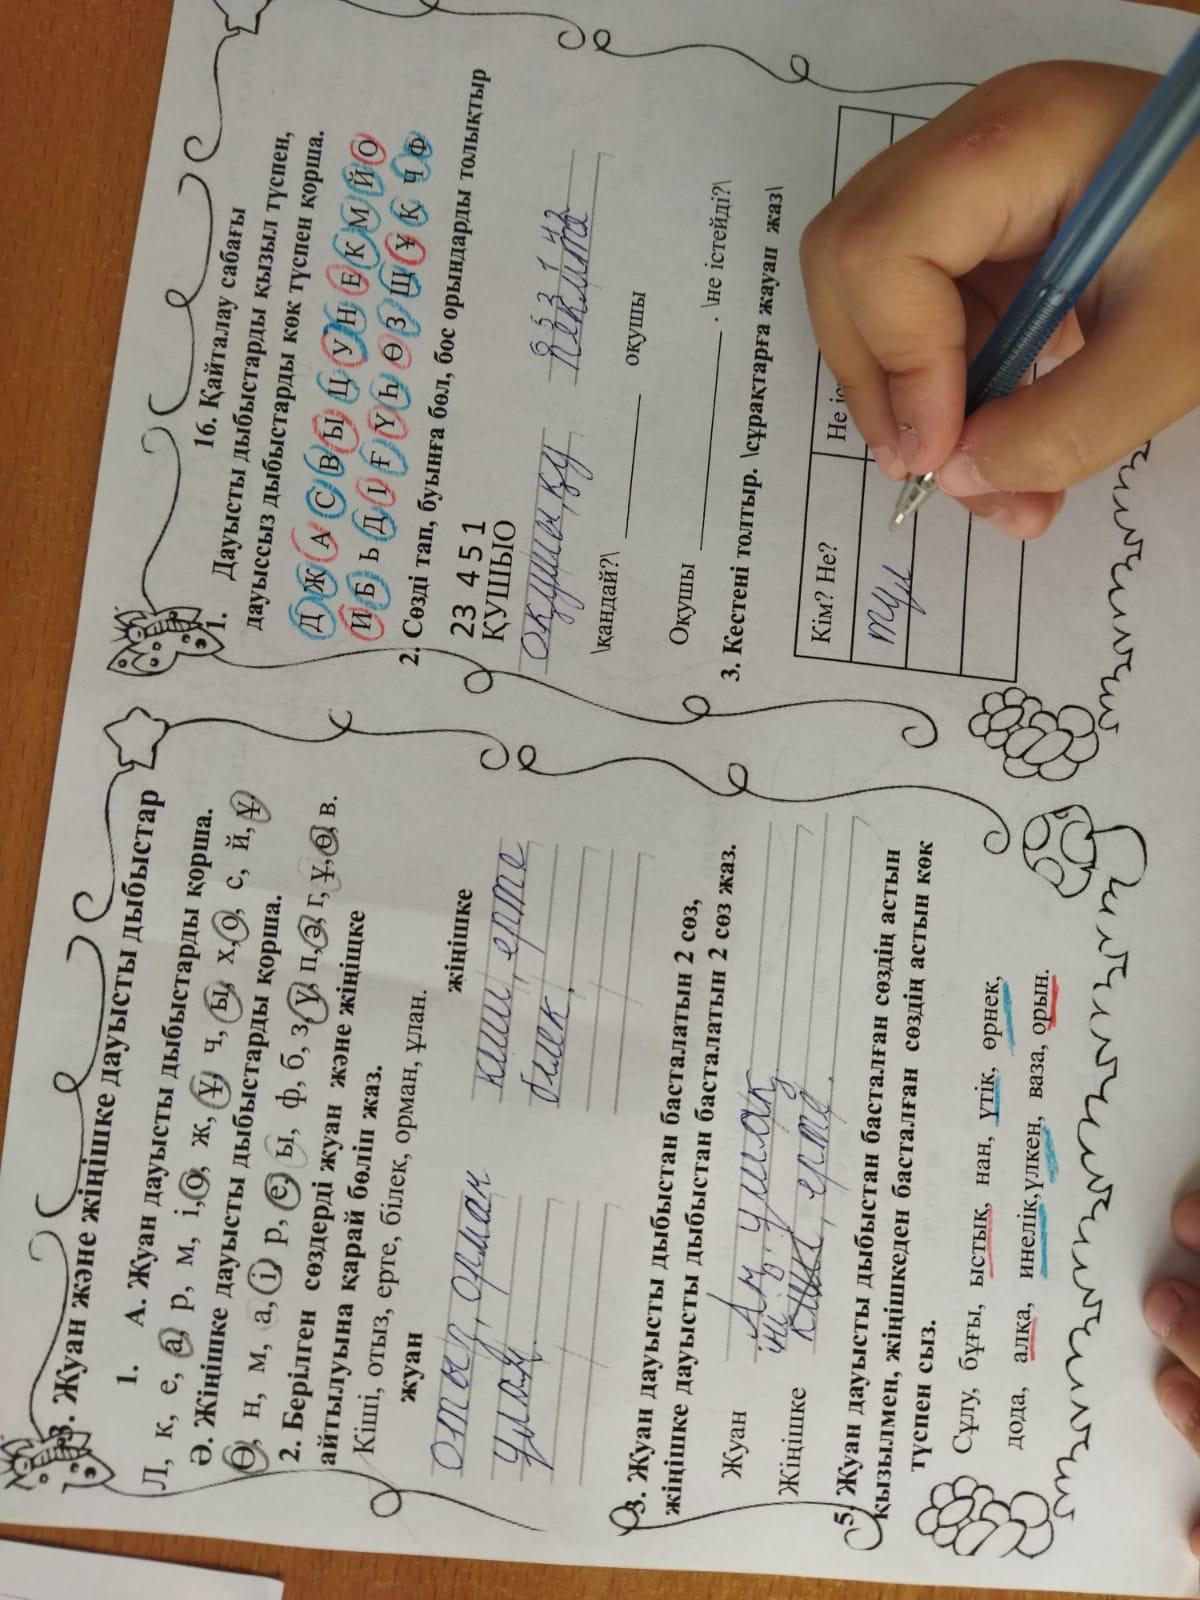 3. Жуан және жіңішке дауысты дыбыстар
1. А. Жуан дауысты дыбыстарды қорша.
Л, к, е, а, р, м, і, о, ж, ұ, ч, ы, х, о, с, й, ұ
Ә. Жіңішке дауысты дыбыстарды қорша.
Ө, н, м, а, і, р, е, ы, ф, б, з, ү, п, ә, г, ұ, ө, в.
2. Берілген сөздерді жуан және жіңішке
айтылуына қарай бөліп жаз.
Кіші, отыз, ерте, білек, орман, ұлан.
жуан жіңішке
отыз, орман кіші, ерте
ұлан. білек.
3. Жуан дауысты дыбыстан басталатын 2 сөз,
жіңішке дауысты дыбыстан басталатын 2 сөз жаз.
Жуан
Жіңішке ерте.
5. Жуан дауысты дыбыстан басталған сөздің астын
қызылмен, жіңішкеден басталған сөздің астын көк
түспен сыз.
Сұлу, бұғы, ыстық, нан, үтік, өрнек,
дода, алқа, инелік,үлкен, ваза, орын.
16. Қайталау сабағы
1. Дауысты дыбыстарды қызыл түспен,
дауыссыз дыбыстарды көк түспен қорша.
Д Ж А С В Ы Ц У Н Е К М Й О
И Б Ь Д І Ғ Ү Һ Ө З Щ Ұ Қ Ч Ф
2. Сөзді тап, буынға бөл, бос орындарды толықтыр
23 451
ҚУШЫО
оқушы қу
\қандай?\ оқушы
Оқушы . \не істейді?\
3. Кестені толтыр. \сұрақтарға жауап жаз\
Кім? Не?